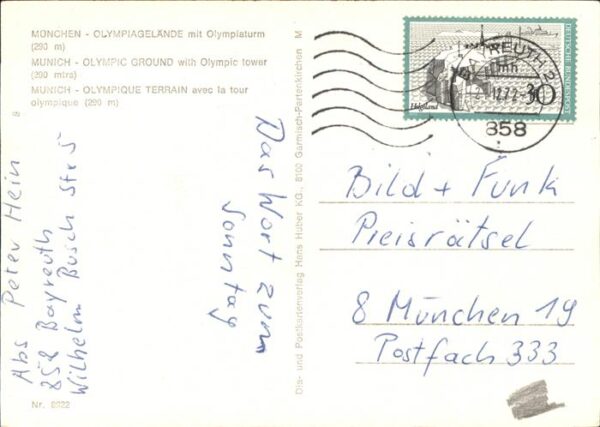 MÜNCHEN - OLYMPIAGELÄNDE mit Olympiaturm
(290 m)
MUNICH - OLYMPIC GROUND with Olympic tower
(290 mtrs)
MUNICH - OLYMPIQUE TERRAIN avec la tour
olympique (290 m)
Das Wort zum
Sonntag
Abs Peter Hein
858 Bayreuth
Wilhelm Busch Str 5
Nr. 8922
Dia- und Postkartenverlag Hans Huber KG., 8100 Garmisch-Partenkirchen M
DEUTSCHE BUNDESPOST
Helgoland
30
BAYREUTH 2
858
Bild + Funk
Preisrätsel
8 München 19
Postfach 333